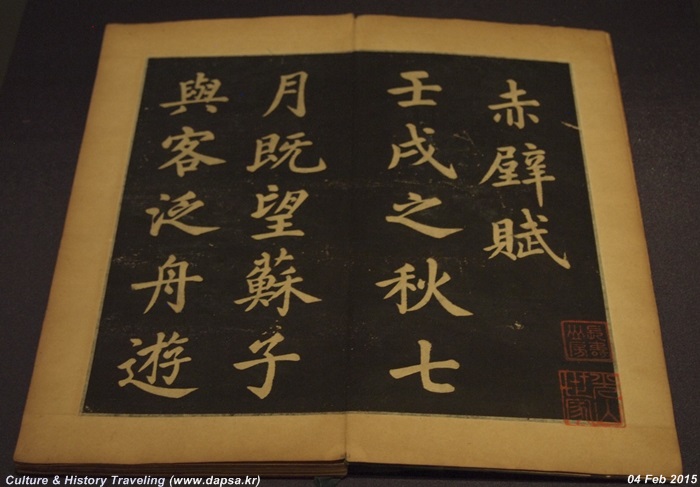 赤壁賦
壬戌之秋七
月既望蘇子
與客泛舟遊
Culture & History Traveling (www.dapsa.kr)
04 Feb 2015